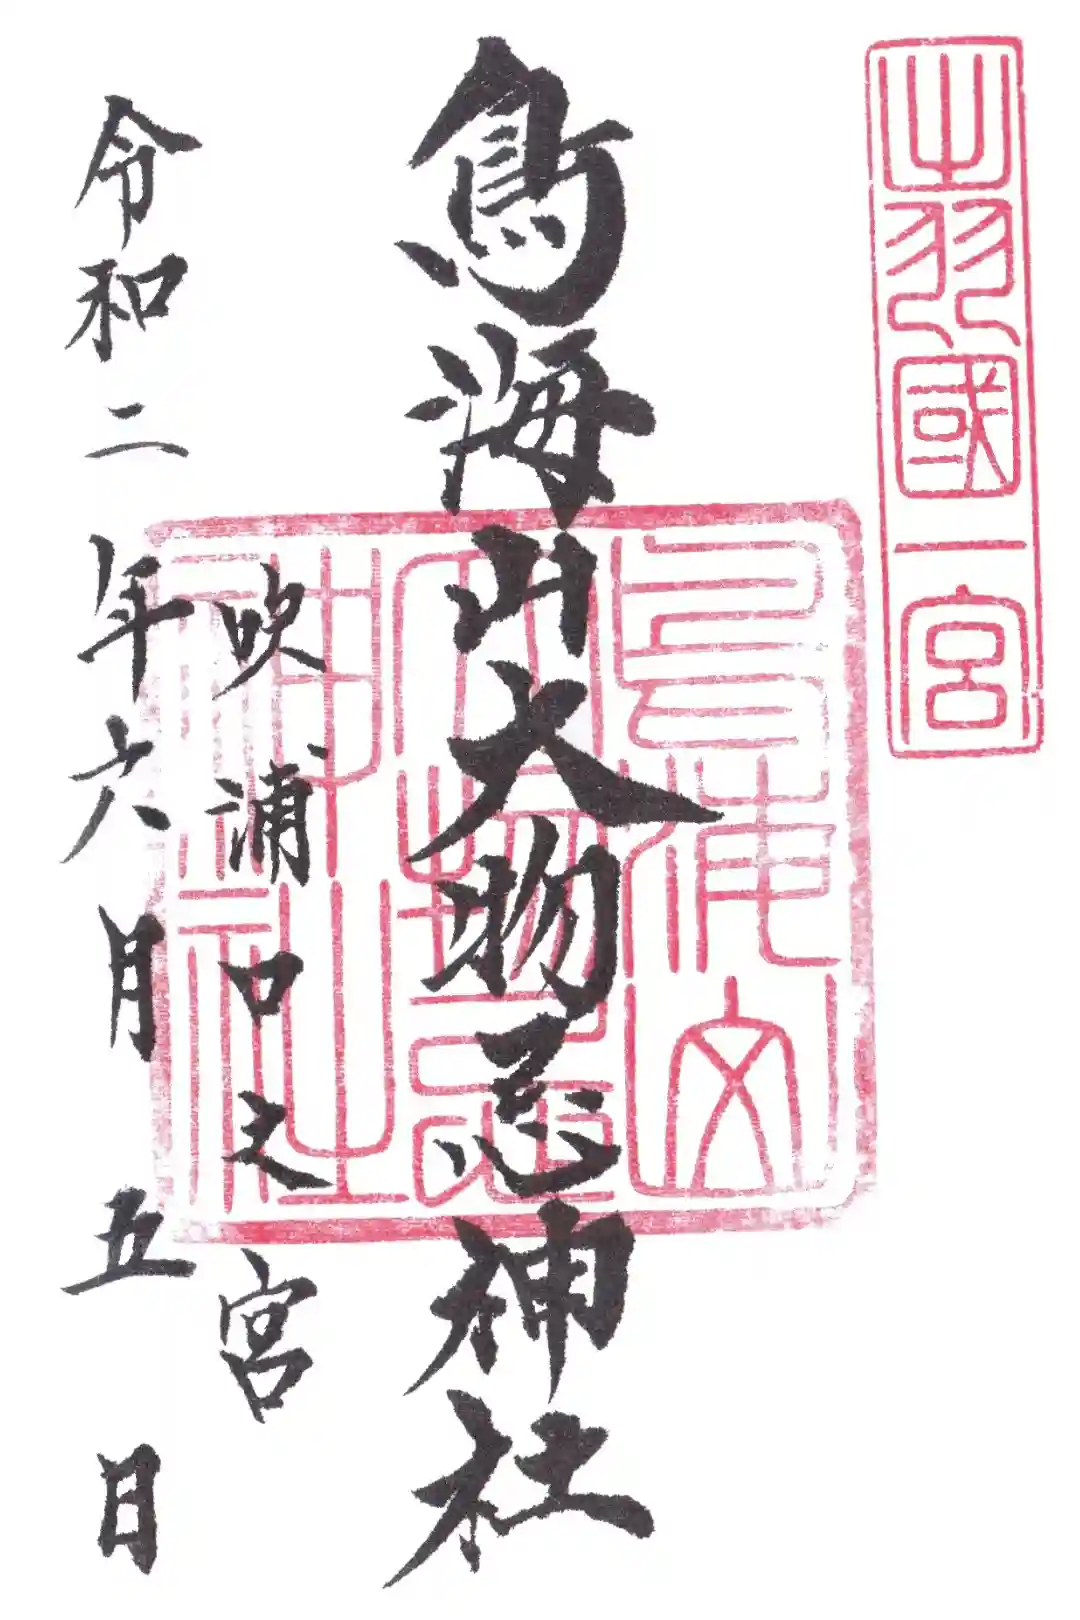 出羽國一宮
鳥海山大物忌神社
鳥海山
大物忌
神社
吹浦口之宮
令和二年六月五日